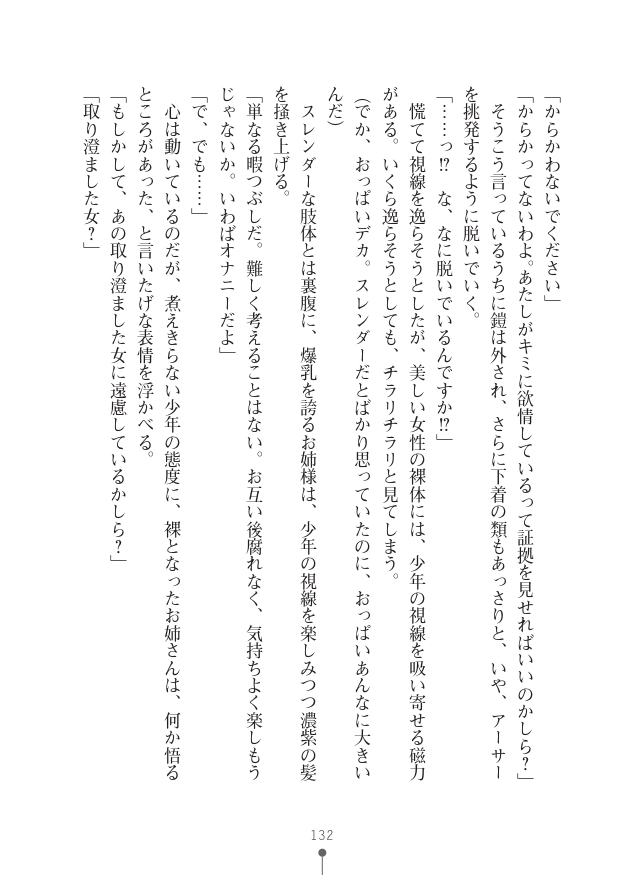 「からかわないでください」
「からかってないわよ。あたしがキミに欲情しているって証拠を見せればいいのかしら？」
　そうこう言っているうちに鎧は外され、さらに下着の類もあっさりと、いや、アーサー
を挑発するように脱いでいく。
「……っ!?　な、なに脱いでいるんですか!?」
　慌てて視線を逸らそうとしたが、美しい女性の裸体には、少年の視線を吸い寄せる磁力
がある。いくら逸らそうとしても、チラリチラリと見てしまう。
（でか、おっぱいデカ。スレンダーだとばかり思っていたのに、おっぱいあんなに大きい
んだ）
　スレンダーな肢体とは裏腹に、爆乳を誇るお姉様は、少年の視線を楽しみつつ濃紫の髪
を掻き上げる。
「単なる暇つぶしだ。難しく考えることはない。お互い後腐れなく、気持ちよく楽しもう
じゃないか。いわばオナニーだよ」
「で、でも……」
　心は動いているのだが、煮えきらない少年の態度に、裸となったお姉さんは、何か悟る
ところがあった、と言いたげな表情を浮かべる。
「もしかして、あの取り澄ました女に遠慮しているかしら？」
「取り澄ました女？」
132